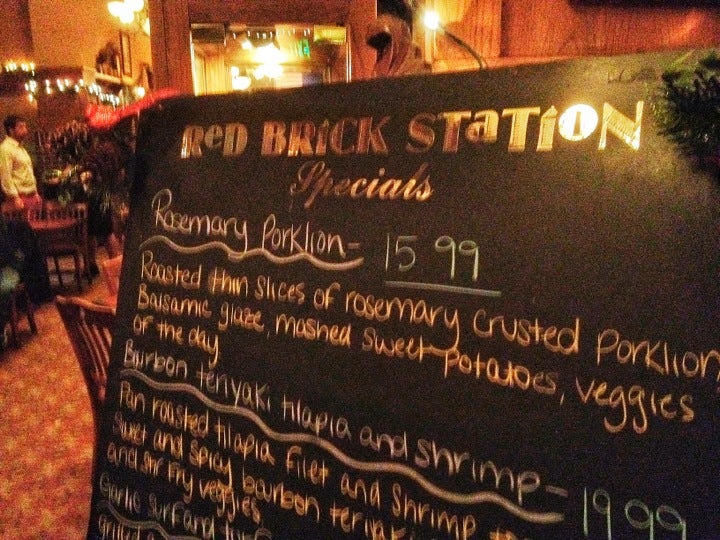 RED BRICK STATION
Specials
Rosemary Porklion- 15.99
Roasted thin slices of rosemary crusted Porklion
Balsamic glaze, mashed sweet potatoes, veggies
of the day.
Bourbon teriyaki tilapia and shrimp- 19.99
Pan roasted tilapia filet and shrimp
sweet and spicy bourbon teriyaki
and stir fry veggies
Garlic surf and turf
Grilled